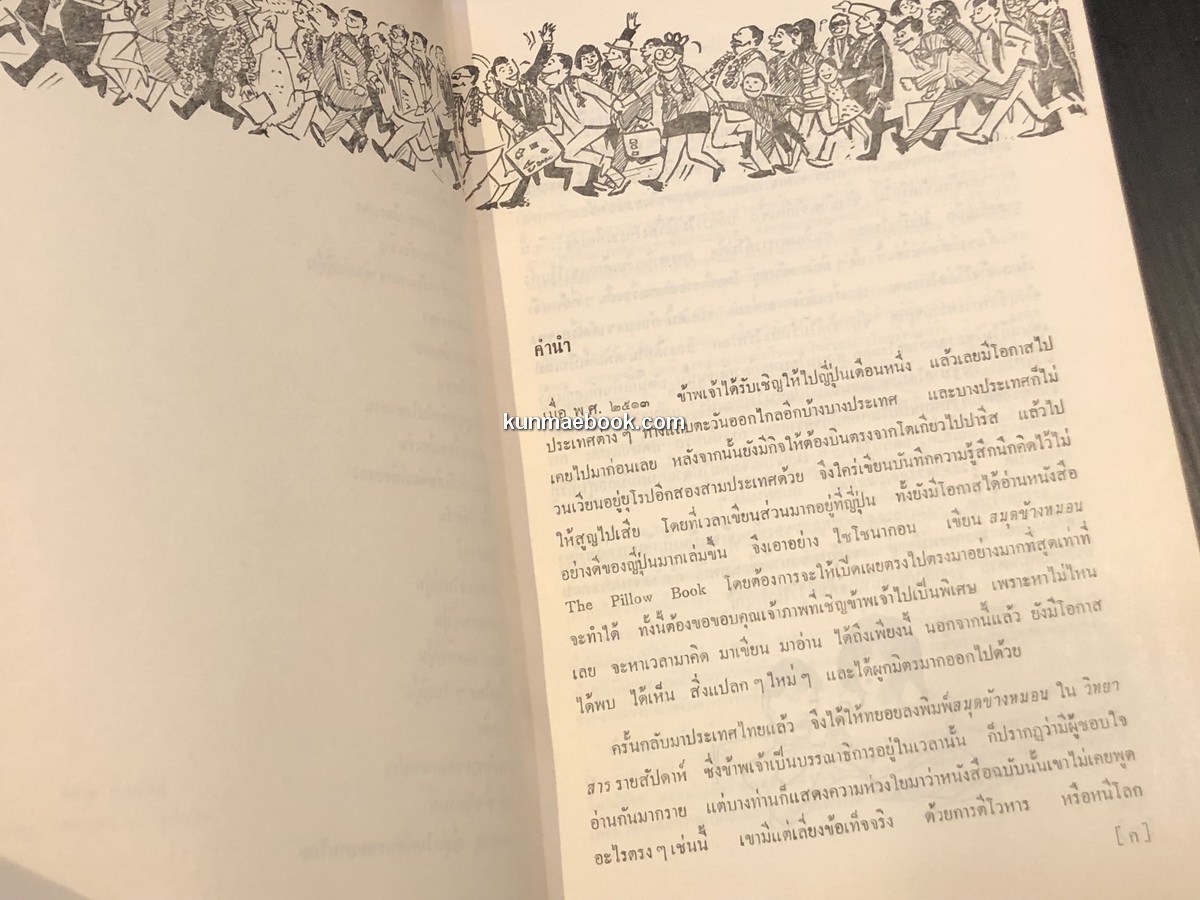 คำนำ
เมื่อ พ.ศ. ๒๕๑๓ ข้าพเจ้าได้รับเชิญให้ไปญี่ปุ่นเดือนหนึ่ง แล้วเลยมีโอกาสไป
kunmaebook.com
ประเทศต่าง ๆ ทางแถบตะวันออกไกลอีกบ้างบางประเทศ และบางประเทศก็ไม่
เคยไปมาก่อนเลย หลังจากนั้นยังมีกิจให้ต้องบินตรงจากโตเกียวไปปารีส แล้วไป
วนเวียนอยู่ยุโรปอีกสองสามประเทศด้วย จึงใคร่เขียนบันทึกความรู้สึกนึกคิดไว้ไม่
ให้สูญไปเสีย โดยที่เวลาเขียนส่วนมากอยู่ที่ญี่ปุ่น ทั้งยังมีโอกาสได้อ่านหนังสือ
อย่างดีของญี่ปุ่นมากเล่มขึ้น จึงเอาอย่าง ไซโชนากอน เขียน สมุดข้างหมอน
The Pillow Book โดยต้องการจะให้เปิดเผยตรงไปตรงมาอย่างมากที่สุดเท่าที่
จะทำได้ ทั้งนี้ต้องขอขอบคุณเจ้าภาพที่เชิญข้าพเจ้าไปเป็นพิเศษ เพราะหาไม่ไหน
เลย จะหาเวลามาคิด มาเขียน มาอ่าน ได้ถึงเพียงนี้ นอกจากนี้แล้ว ยังมีโอกาส
ได้พบ ได้เห็น สิ่งแปลก ๆ ใหม่ ๆ และได้ผูกมิตรมากออกไปด้วย
ครั้นกลับมาประเทศไทยแล้ว จึงได้ให้ทยอยลงพิมพ์สมุดข้างหมอน ใน วิทยา
สาร รายสัปดาห์ ซึ่งข้าพเจ้าเป็นบรรณาธิการอยู่ในเวลานั้น ก็ปรากฏว่ามีผู้ชอบใจ
อ่านกันมากราย แต่บางท่านก็แสดงความห่วงใยมาว่าหนังสือฉบับนั้นเขาไม่เคยพูด
อะไรตรง ๆ เช่นนี้ เขามีแต่เลี่ยงข้อเท็จจริง ด้วยการตีโวหาร หรือหนีโลก
[ ก ]